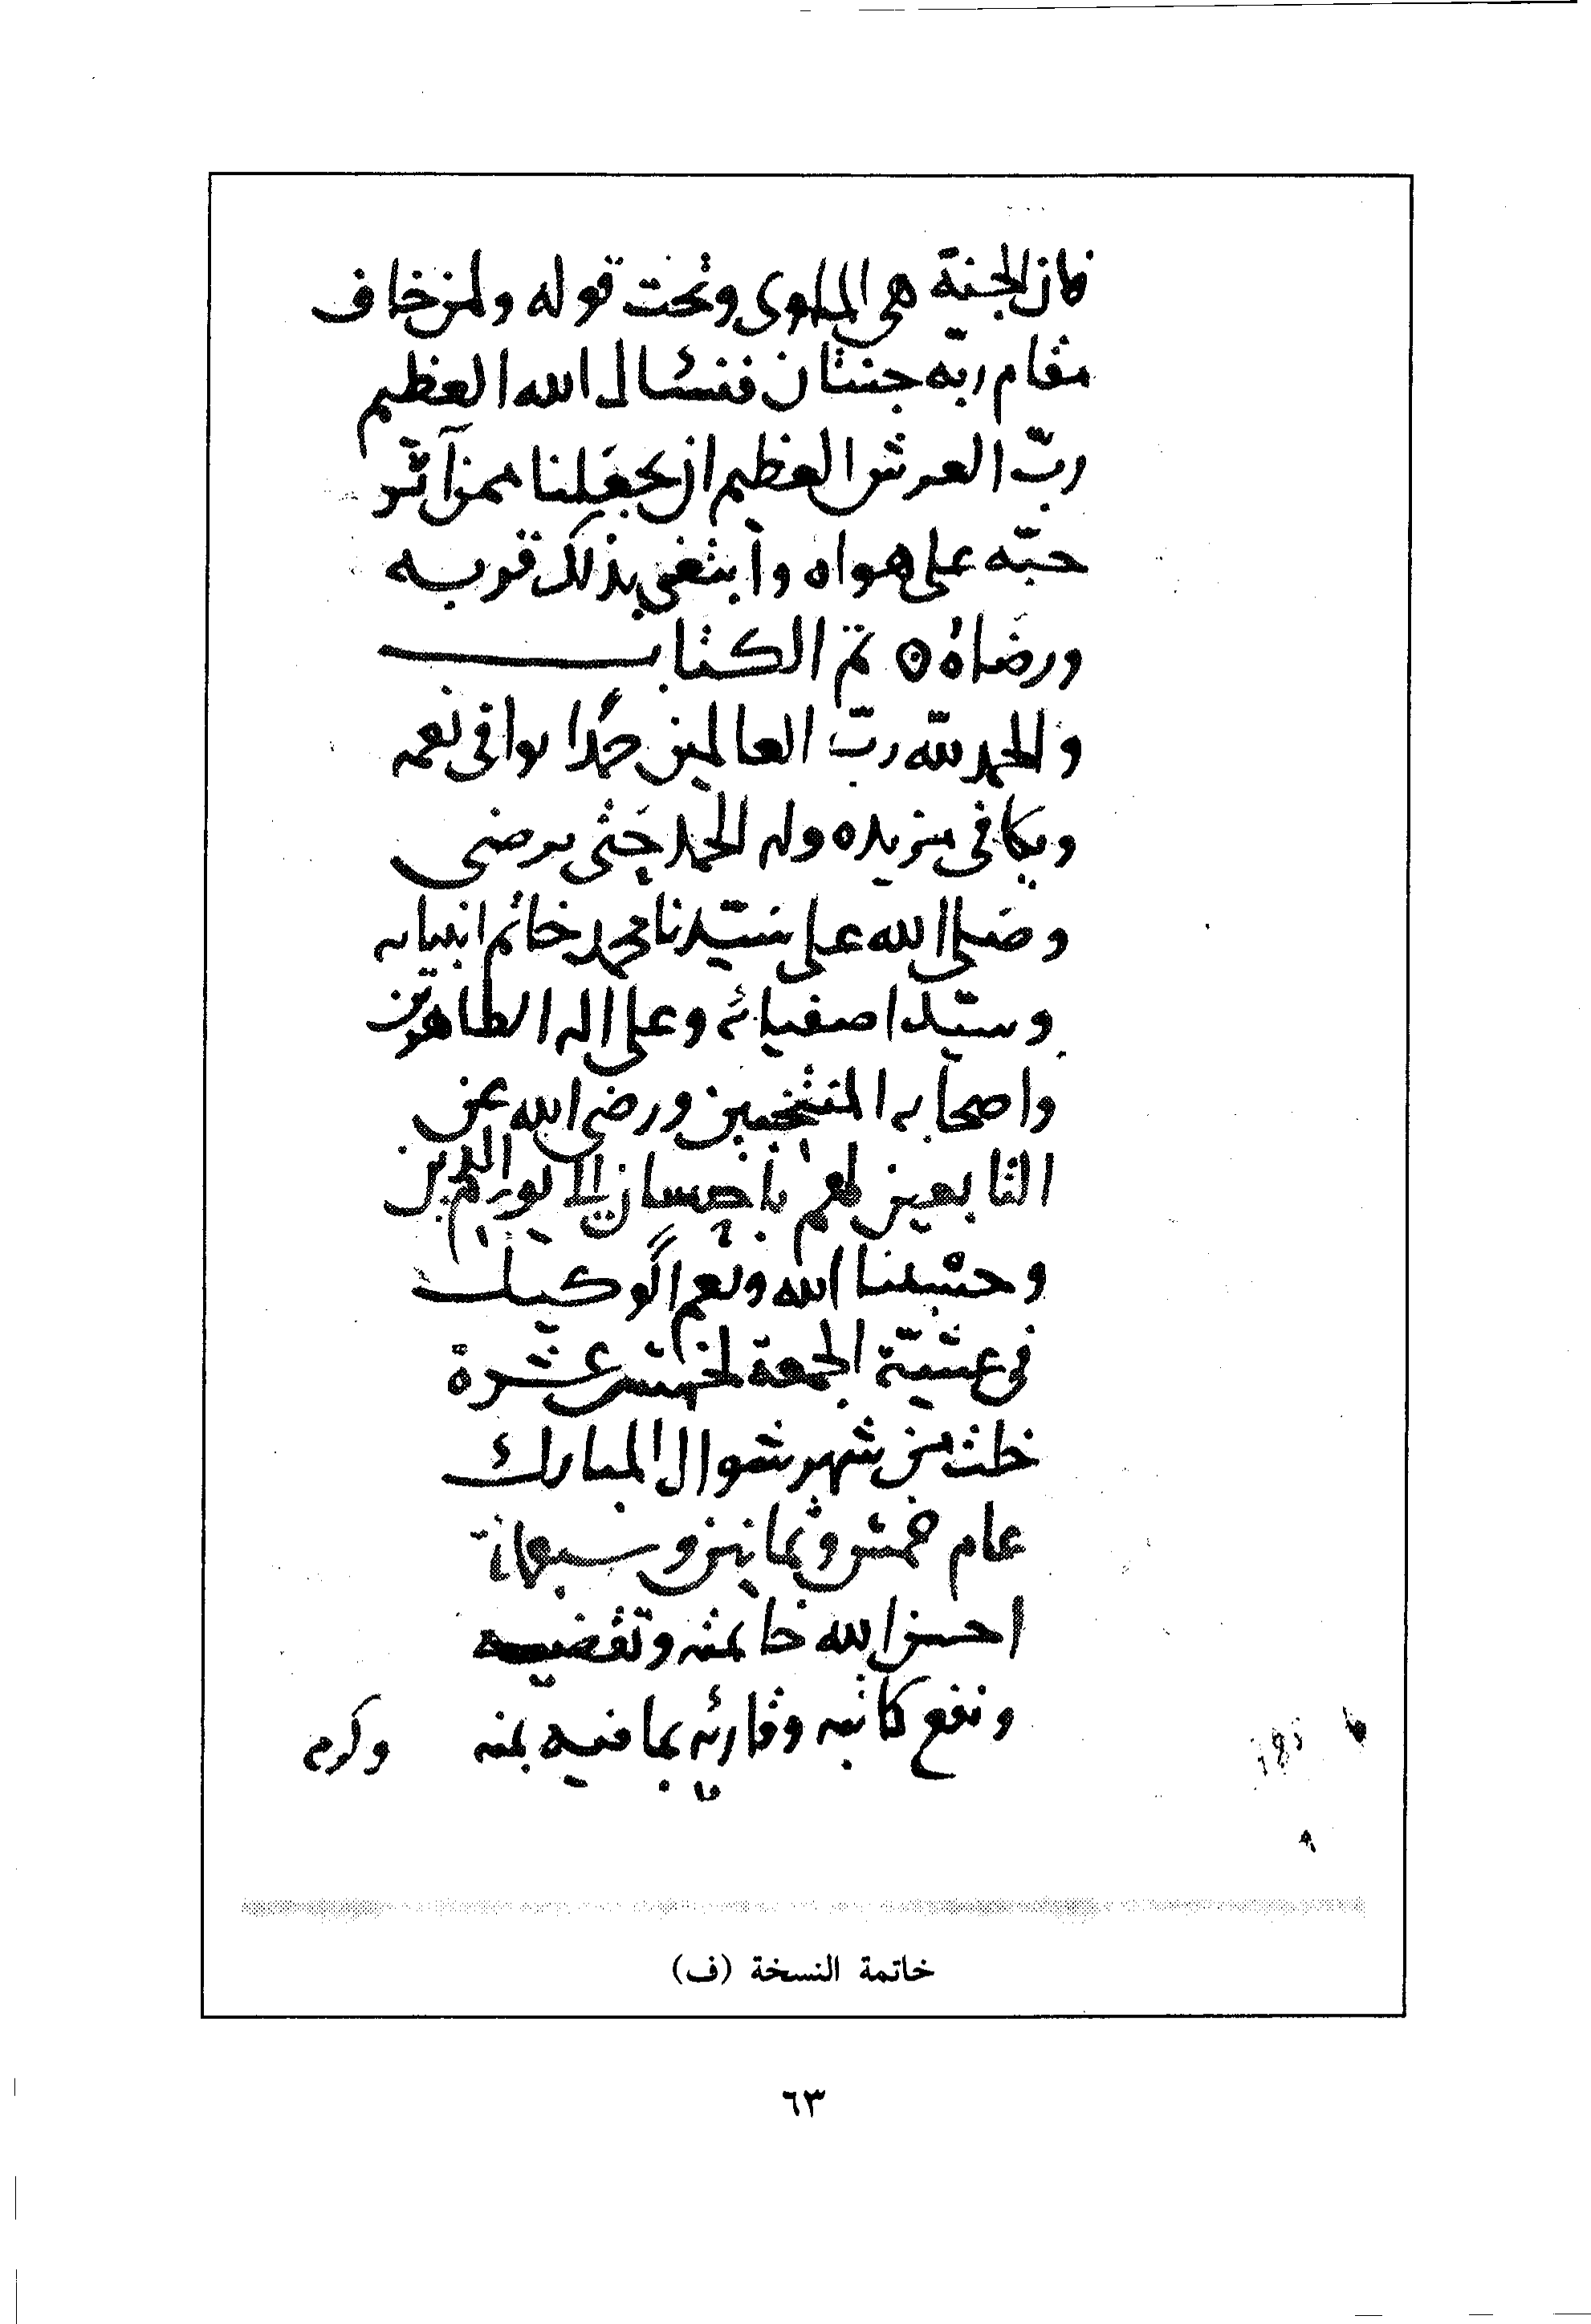 فان الجنة هي المأوى وتحت قوله ولمن خاف
مقام ربّه جنتان فنسئال الله العظيم
ربّ العرش العظيم ان يجعلنا ممن آثر
حبّه على هواه وابتغى بذلك قربه
ورضاه ۞ تم الكتاب
والحمد لله ربّ العالمين حمدًا يوافي نعمه
ويكافي مزيده وله الحمد حتى يرضى
وصلى الله على سيّدنا محمد خاتم انبيايه
وسيّد اصفيائه وعلى اله الطاهرين
واصحابه المنتخبين ورضي الله عن
التابعين لهم باحسان الى يوم الدين
وحسْبنا الله ونعم الوكيل
في عشيّة الجمعة لخمس عشرة
خلت من شهر شوال المبارك
عام خمس وثمانين وسبعمائة
احسن الله خاتمته وتقضيه
ونفع كاتبه وقارئه بما فيه بمنه وكرمه
خاتمة النسخة (ف)
٦٣